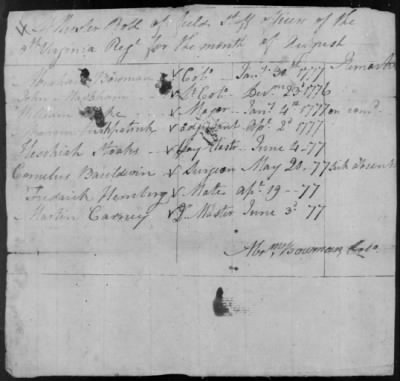 A Muster Roll of Field Staff officers of the
8th Virginia Regt for the month of August
Abraham Bowman Colo. Jany. 30th 1777 Remarks
John Lt Colo. 23d 1776
William Major Jany. 4th 1777 on comd
Kirkpatrick Adjutant Apl. 2d 1777
Hezekiah Stoaks Pay Mastr June 4 - 77
Cornelius Bauldwin Surgeon May 20 - 77 Sick Absent
Fredrick Hemberg Mate Apl. 19 - 77
Martin Carney Qr Master June 3d - 77
Abrm. Bowman Colo.